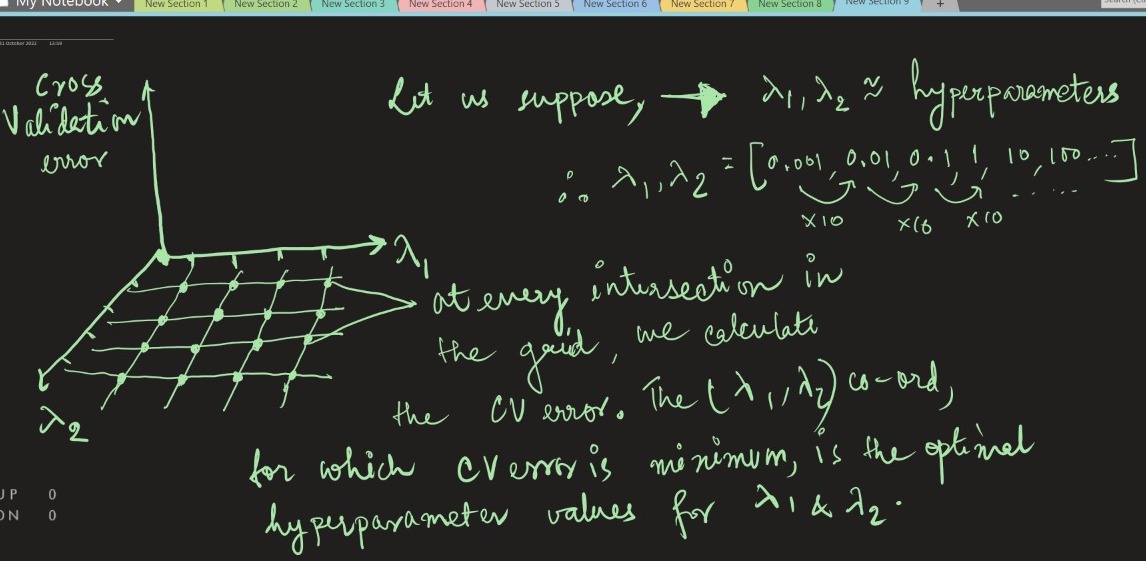 My Notebook
New Section 1 New Section 2 New Section 3 New Section 4 New Section 5 New Section 6 New Section 7 New Section 8 New Section 9 +
31 October 2022 12:59
Cross
Validation
error
Let us suppose, → λ1, λ2 ≈ hyperparameters
∴ λ1, λ2 = [0.001, 0.01, 0.1, 1, 10, 100....]
×10 ×10 ×10
λ1
λ2
at every intersection in
the grid, we calculate
the CV error. The (λ1, λ2) co-ord,
for which CV error is minimum, is the optimal
hyperparameter values for λ1 & λ2.
UP 0
ON 0